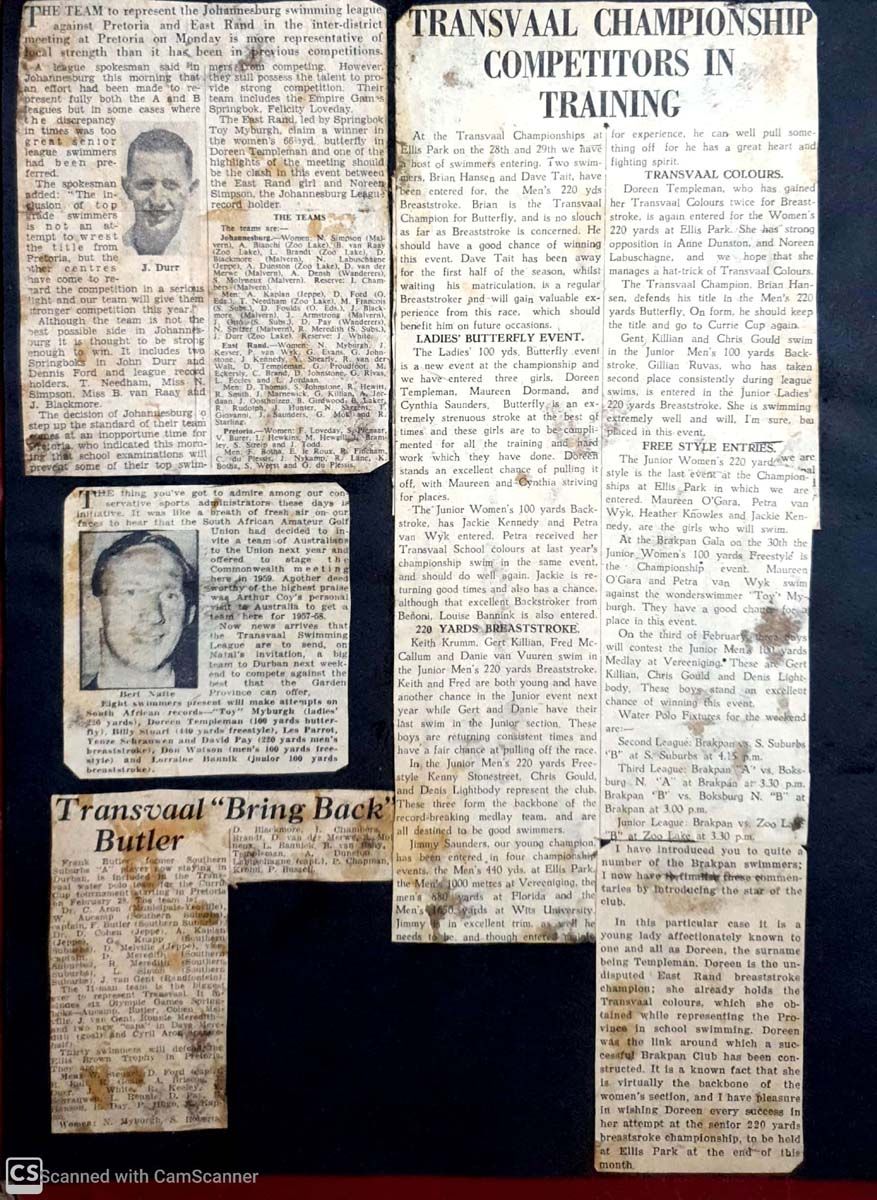 THE TEAM to represent the Johannesburg swimming league
against Pretoria and East Rand in the inter-district
meeting at Pretoria on Monday is more representative of
local strength than it has been in previous competitions.
A league spokesman said in
Johannesburg this morning that
an effort had been made to re-
present fully both the A and B
leagues but in some cases where
the discrepancy
in times was too
great senior
league swimmers
had been pre-
ferred.
The spokesman
added: "The in-
clusion of top
grade swimmers
is not an at-
tempt to wrest
the title from
Pretoria, but the
other centres
have come to re-
gard the competition in a serious
light and our team will give them
stronger competition this year."
Although the team is not the
best possible side in Johannes-
burg it is thought to be strong
enough to win. It includes two
Springboks in John Durr and
Dennis Ford and league record
holders, T. Needham, Miss N.
Simpson, Miss B. van Raay and
J. Blackmore.
The decision of Johannesburg to
step up the standard of their team
comes at an inopportune time for
Pretoria, who indicated this morn-
ing that school examinations will
prevent some of their top swim-
J. Durr
mers from competing. However,
they still possess the talent to pro-
vide strong competition. Their
team includes the Empire Games
Springbok, Felicity Loveday.
The East Rand, led by Springbok
Toy Myburgh, claim a winner in
the women's 66⅔yd. butterfly in
Doreen Templeman and one of the
highlights of the meeting should
be the clash in this event between
the East Rand girl and Noreen
Simpson, the Johannesburg League
record holder.
THE TEAMS
The teams are:—
Johannesburg.—Women: N. Simpson (Mal-
vern), A. Bianchi (Zoo Lake), B. van Raay
(Zoo Lake), L. Brandt (Zoo Lake), D.
Blackmore (Malvern), N. Labuschagne
(Jeppe), A. Dunston (Zoo Lake), D. van der
Merwe (Malvern), A. Densh (Wanderers),
S. Molyneux (Malvern). Reserve: I. Cham-
bers (Malvern).
Men: A. Kaplan (Jeppe), D. Ford (O.
Eds.), T. Needham (Zoo Lake), M. Francois
(S. Subs.), D. Foulds (O. Eds.), J. Black-
more (Malvern), J. Armstrong (Malvern),
J. Otto (S. Subs.), D. Pay (Wanderers),
N. Spitz (Malvern), R. Meredith (S. Subs.),
J. Durr (Zoo Lake). Reserve: J. White.
East Rand.—Women: N. Myburgh, J.
Keyser, P. van Wyk, G. Evans, G. John-
stone, J. Kennedy, S. Shearly, R. van der
Walt, D. Templeman, G. Proudfoot, M.
Eckersly, C. Brand, D. Johnstone, G. Rivas,
L. Eccles and L. Jordaan.
Men: D. Thomas, S. Johnstone, R. Hewitt,
R. Smith, J. Marnewick, G. Killian, A. Jor-
daan, J. Oosthuizen, B. Girdwood, B. Laker,
R. Rudolph, J. Hunter, N. T.
Giovanni, J. Saunders, G. Mock and R.
Starling.
Pretoria.—Women: F. Loveday, S. Pienaar,
V. Burer, I. Hewkins, M. Bram-
ley, S. Streep and J. Todd.
Men: F. Botha, E. le Roux, R. Fincham,
C. du Plessis, J. Nykamp, R. Lane, K.
Botha, S. Werst and G. du Plessis.
THE thing you've got to admire among our con-
servative sports administrators these days is
initiative. It was like a breath of fresh air on our
faces to hear that the South African Amateur Golf
Union had decided to in-
vite a team of Australians
to the Union next year and
offered to stage the
Commonwealth meeting
here in 1959. Another deed
worthy of the highest praise
was Arthur Coy's personal
visit to Australia to get a
team here for 1957-58.
Now news arrives that
the Transvaal Swimming
League are to send, on
Natal's invitation, a big
team to Durban next week-
end to compete against the
best that the Garden
Province can offer.
Bert Nafte
Eight swimmers present will make attempts on
South African records—"Toy" Myburgh (ladies'
220 yards), Doreen Templeman (100 yards butter-
fly), Billy Stuart (440 yards freestyle), Les Parrot,
Yenze Schrauwen and David Pay (220 yards men's
breaststroke), Don Watson (men's 100 yards free-
style) and Lorraine Bannik (junior 100 yards
breaststroke).
Transvaal "Bring Back"
Butler
Frank Butler, former Southern
Suburbs "A" player now staying in
Durban, is included in the Trans-
vaal water polo team for the Currie
Cup tournament starting in Pretoria
on February 28. The team is:
Dr. C. Aron
W. Aucamp (Southern Suburbs),
captain, F. Butler (Southern Suburbs),
Dr. D. Cohen (Jeppe), A. Kaplan
(Jeppe), G. Knapp (Southern
Suburbs), D. Melville (Jeppe), vice-
captain, D. Meredith (Southern
Suburbs), R. Meredith (Southern
Suburbs), L. Simon (Southern
Suburbs), J. van Gent (Randfontein).
The 11-man team is the biggest
ever to represent Transvaal. It in-
cludes six Olympic Games Spring-
boks—Aucamp, Butler, Cohen, Mel-
ville, J. van Gent, Ronnie Meredith—
and two new "caps" in Dave Mere-
dith (goal) and Cyril Aron
Thirty swimmers will defend the
Ellis Brown Trophy in Pretoria.
They are:
Men: W. Steuart, D. Ford
A. Briscoe,
Durr, White, R. Keeley,
Schrauwen, L. Rennie, D. Pay,
Hanson, B. Day, P. Hugo, K. Kap-
Women: N. Myburgh, S. Roberts,
D. Blackmore, I. Chambers,
Brandt, D. van der Merwe,
L. Bannick, B. van Raay,
Templeman, A. Dunston,
Labuschagne (capt.), P. Chapman,
Cronje, P. Russell.
TRANSVAAL CHAMPIONSHIP
COMPETITORS IN
TRAINING
At the Transvaal Championships at
Ellis Park on the 28th and 29th we have
a host of swimmers entering. Two swim-
mers, Brian Hansen and Dave Tait, have
been entered for, the Men's 220 yds
Breaststroke. Brian is the Transvaal
Champion for Butterfly, and is no slouch
as far as Breaststroke is concerned. He
should have a good chance of winning
this event. Dave Tait has been away
for the first half of the season, whilst
waiting his matriculation, is a regular
Breaststroker and will gain valuable ex-
perience from this race, which should
benefit him on future occasions.
LADIES' BUTTERFLY EVENT.
The Ladies' 100 yds. Butterfly event
is a new event at the championship and
we have entered three girls, Doreen
Templeman, Maureen Dormand, and
Cynthia Saunders, Butterfly is an ex-
tremely strenuous stroke at the best of
times and these girls are to be compli-
mented for all the training and hard
work which they have done. Doreen
stands an excellent chance of pulling it
off, with Maureen and Cynthia striving
for places.
The Junior Women's 100 yards Back-
stroke, has Jackie Kennedy and Petra
van Wyk entered. Petra received her
Transvaal School colours at last year's
championship swim in the same event,
and should do well again. Jackie is re-
turning good times and also has a chance,
although that excellent Backstroker from
Benoni, Louise Bannink is also entered.
220 YARDS BREASTSTROKE.
Keith Krumm, Gert Killian, Fred Mc-
Callum and Danie van Vuuren swim in
the Junior Men's 220 yards Breaststroke.
Keith and Fred are both young and have
another chance in the Junior event next
year while Gert and Danie have their
last swim in the Junior section. These
boys are returning consistent times and
have a fair chance at pulling off the race.
In the Junior Men's 220 yards Free-
style Kenny Stonestreet, Chris Gould,
and Denis Lightbody represent the club.
These three form the backbone of the
record-breaking medley team, and are
all destined to be good swimmers.
Jimmy Saunders, our young champion
has been entered in four championship
events, the Men's 440 yds. at Ellis Park,
the Men's 1000 metres at Vereeniging, the
men's 880 yards at Florida and the
Men's 1650 yards at Wits University.
Jimmy is in excellent trim, as well he
needs to be, and though entered mainly
for experience, he can well pull some-
thing off for he has a great heart and
fighting spirit.
TRANSVAAL COLOURS.
Doreen Templeman, who has gained
her Transvaal Colours twice for Breast-
stroke, is again entered for the Women's
220 yards at Ellis Park. She has strong
opposition in Anne Dunston, and Noreen
Labuschagne, and we hope that she
manages a hat-trick of Transvaal Colours.
The Transvaal Champion, Brian Han-
sen, defends his title in the Men's 220
yards Butterfly. On form, he should keep
the title and go to Currie Cup again.
Gent Killian and Chris Gould swim
in the Junior Men's 100 yards Back-
stroke. Gillian Ruvas, who has taken
second place consistently during league
swims, is entered in the Junior Ladies'
220 yards Breaststroke. She is swimming
extremely well and will, I'm sure, be
placed in this event.
FREE STYLE ENTRIES.
The Junior Women's 220 yards
style is the last event at the Champion-
ships at Ellis Park in which we are
entered. Maureen O'Gara, Petra van
Wyk, Heather Knowles and Jackie Ken-
nedy, are the girls who will swim.
At the Brakpan Gala on the 30th the
Junior Women's 100 yards Freestyle is
the Championship event. Maureen
O'Gara and Petra van Wyk swim
against the wonderswimmer "Toy" My-
burgh. They have a good chance for a
place in this event.
On the third of February, three boys
will contest the Junior Men's 100 yards
Medlay at Vereeniging. These are Gert
Killian, Chris Gould and Denis Light-
body. These boys stand an excellent
chance of winning this event.
Water Polo Fixtures for the weekend
are:—
Second League: Brakpan vs. S. Suburbs
"B" at S. Suburbs at 4.15 p.m.
Third League: Brakpan "A" vs. Boks-
burg N. "A" at Brakpan at 3.30 p.m.
Brakpan "B" vs. Boksburg N. "B" at
Brakpan at 3.00 p.m.
Junior League: Brakpan vs. Zoo Lake
"B" at Zoo Lake at 3.30 p.m.
I have introduced you to quite a
number of the Brakpan swimmers;
I now have to finalise these commen-
taries by introducing the star of the
club.
In this particular case it is a
young lady affectionately known to
one and all as Doreen, the surname
being Templeman. Doreen is the un-
disputed East Rand breaststroke
champion; she already holds the
Transvaal colours, which she ob-
tained while representing the Pro-
vince in school swimming. Doreen
was the link around which a suc-
cessful Brakpan Club has been con-
structed. It is a known fact that she
is virtually the backbone of the
women's section, and I have pleasure
in wishing Doreen every success in
her attempt at the senior 220 yards
breastsroke championship, to be held
at Ellis Park at the end of this
month.
CS Scanned with CamScanner